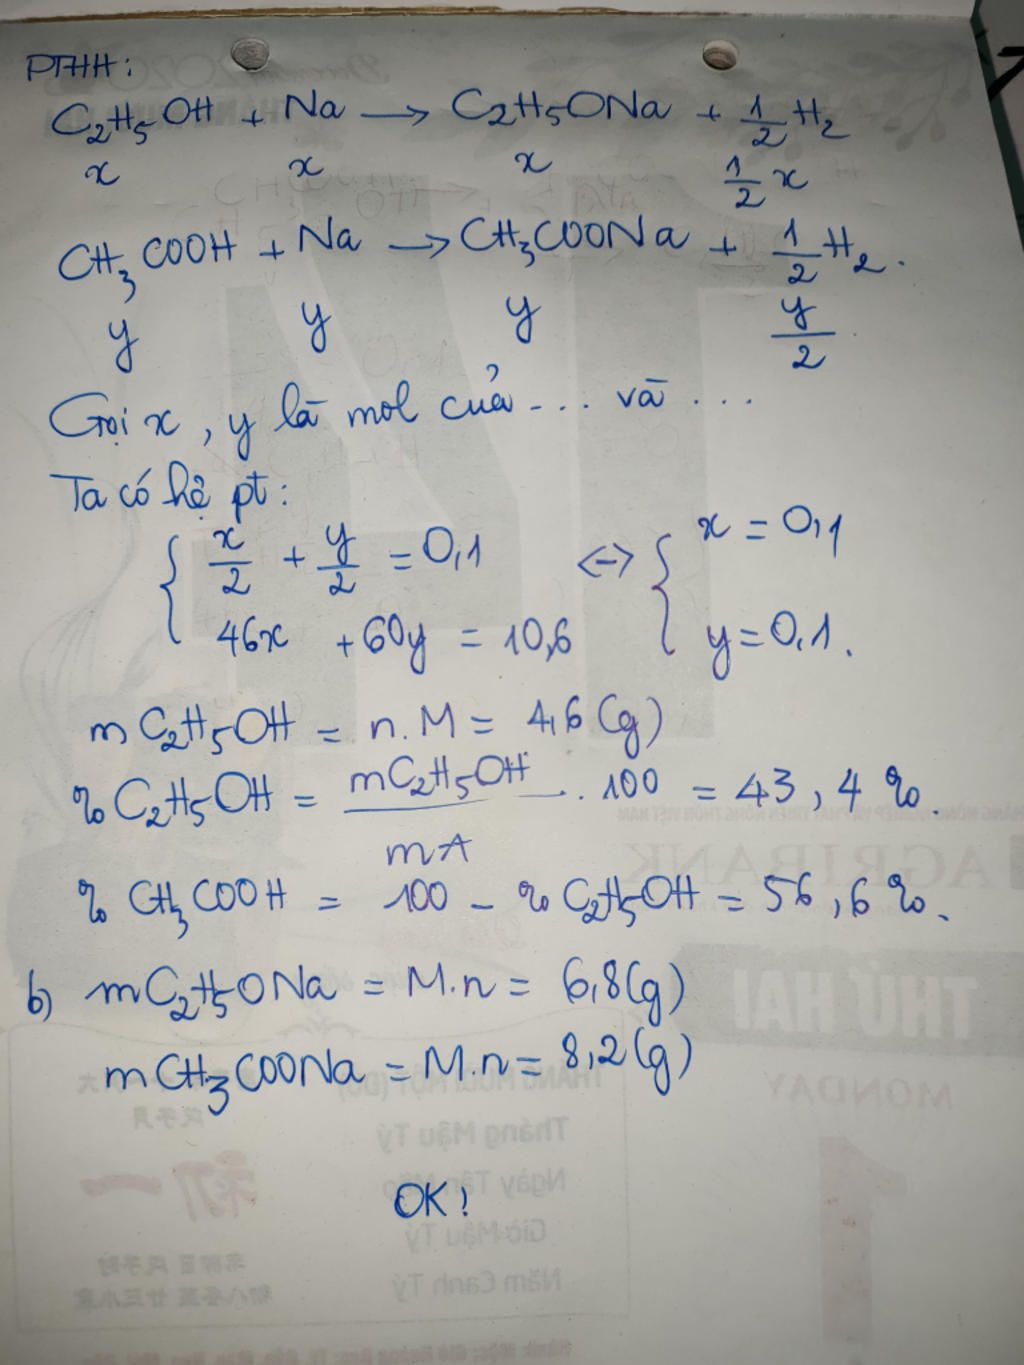 PTHH:
C₂H₅OH + Na → C₂H₅ONa + 1/2 H₂
x x x 1/2 x
CH₃COOH + Na → CH₃COONa + 1/2 H₂.
y y y y/2
Gọi x, y là mol của ... và ...
Ta có hệ pt:
{ x/2 + y/2 = 0,1 <-> { x = 0,1
46x + 60y = 10,6 y = 0,1.
mC₂H₅OH = n.M = 4,6 (g)
% C₂H₅OH = mC₂H₅OH / mA . 100 = 43,4 %.
% CH₃COOH = 100 - % C₂H₅OH = 56,6 %.
b) mC₂H₅ONa = M.n = 6,8 (g)
mCH₃COONa = M.n = 8,2 (g)
OK!
AGRIBANK
THỨ HAI
MONDAY
1
Tháng Mậu Tý
Giờ Mậu Tý
Năm Canh Tý
初一